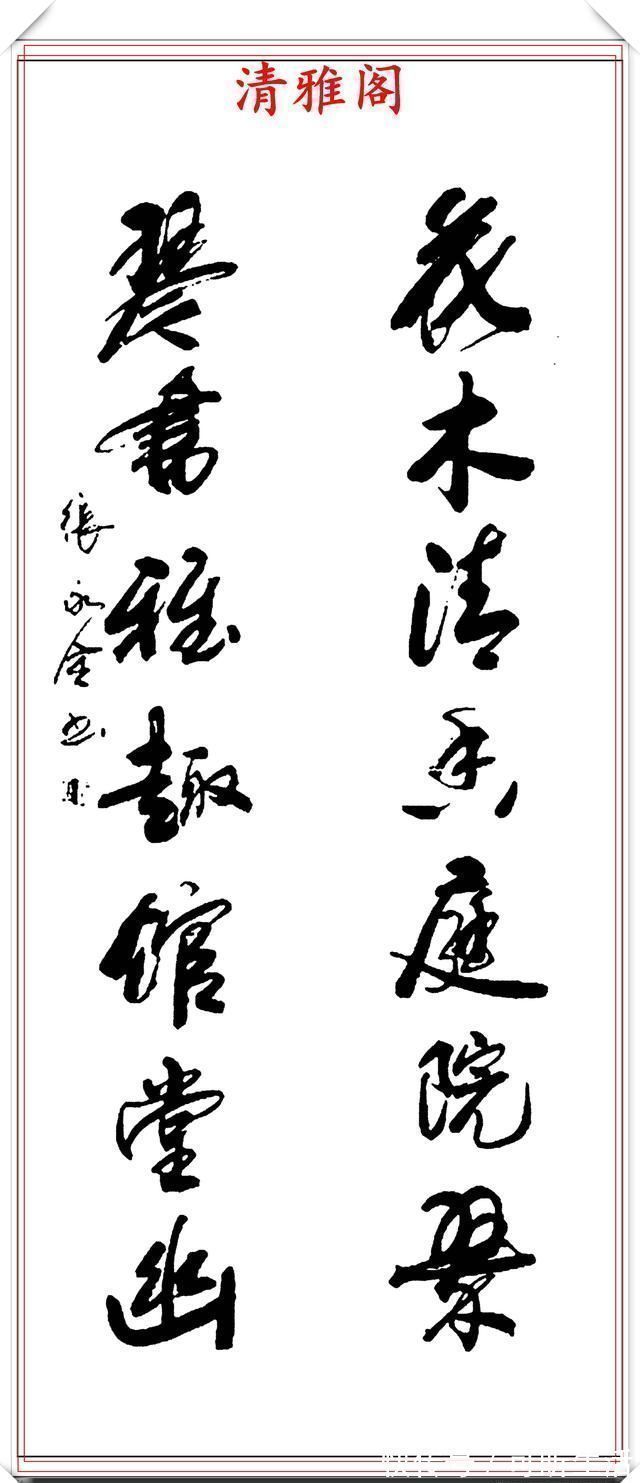 清雅阁
花木清香庭院翠
琴书雅趣馆堂幽
张永金书